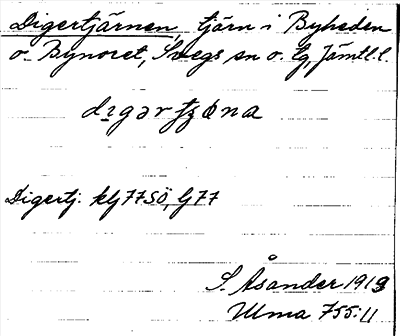 Digertjärnen, tjärn i Byheden
o. Bynoret, Svegs sn o. tg, Jämtl. l.
Digertj. kbl 77 SÖ, G 77
S. Åsander 1919
Ulma 755:11